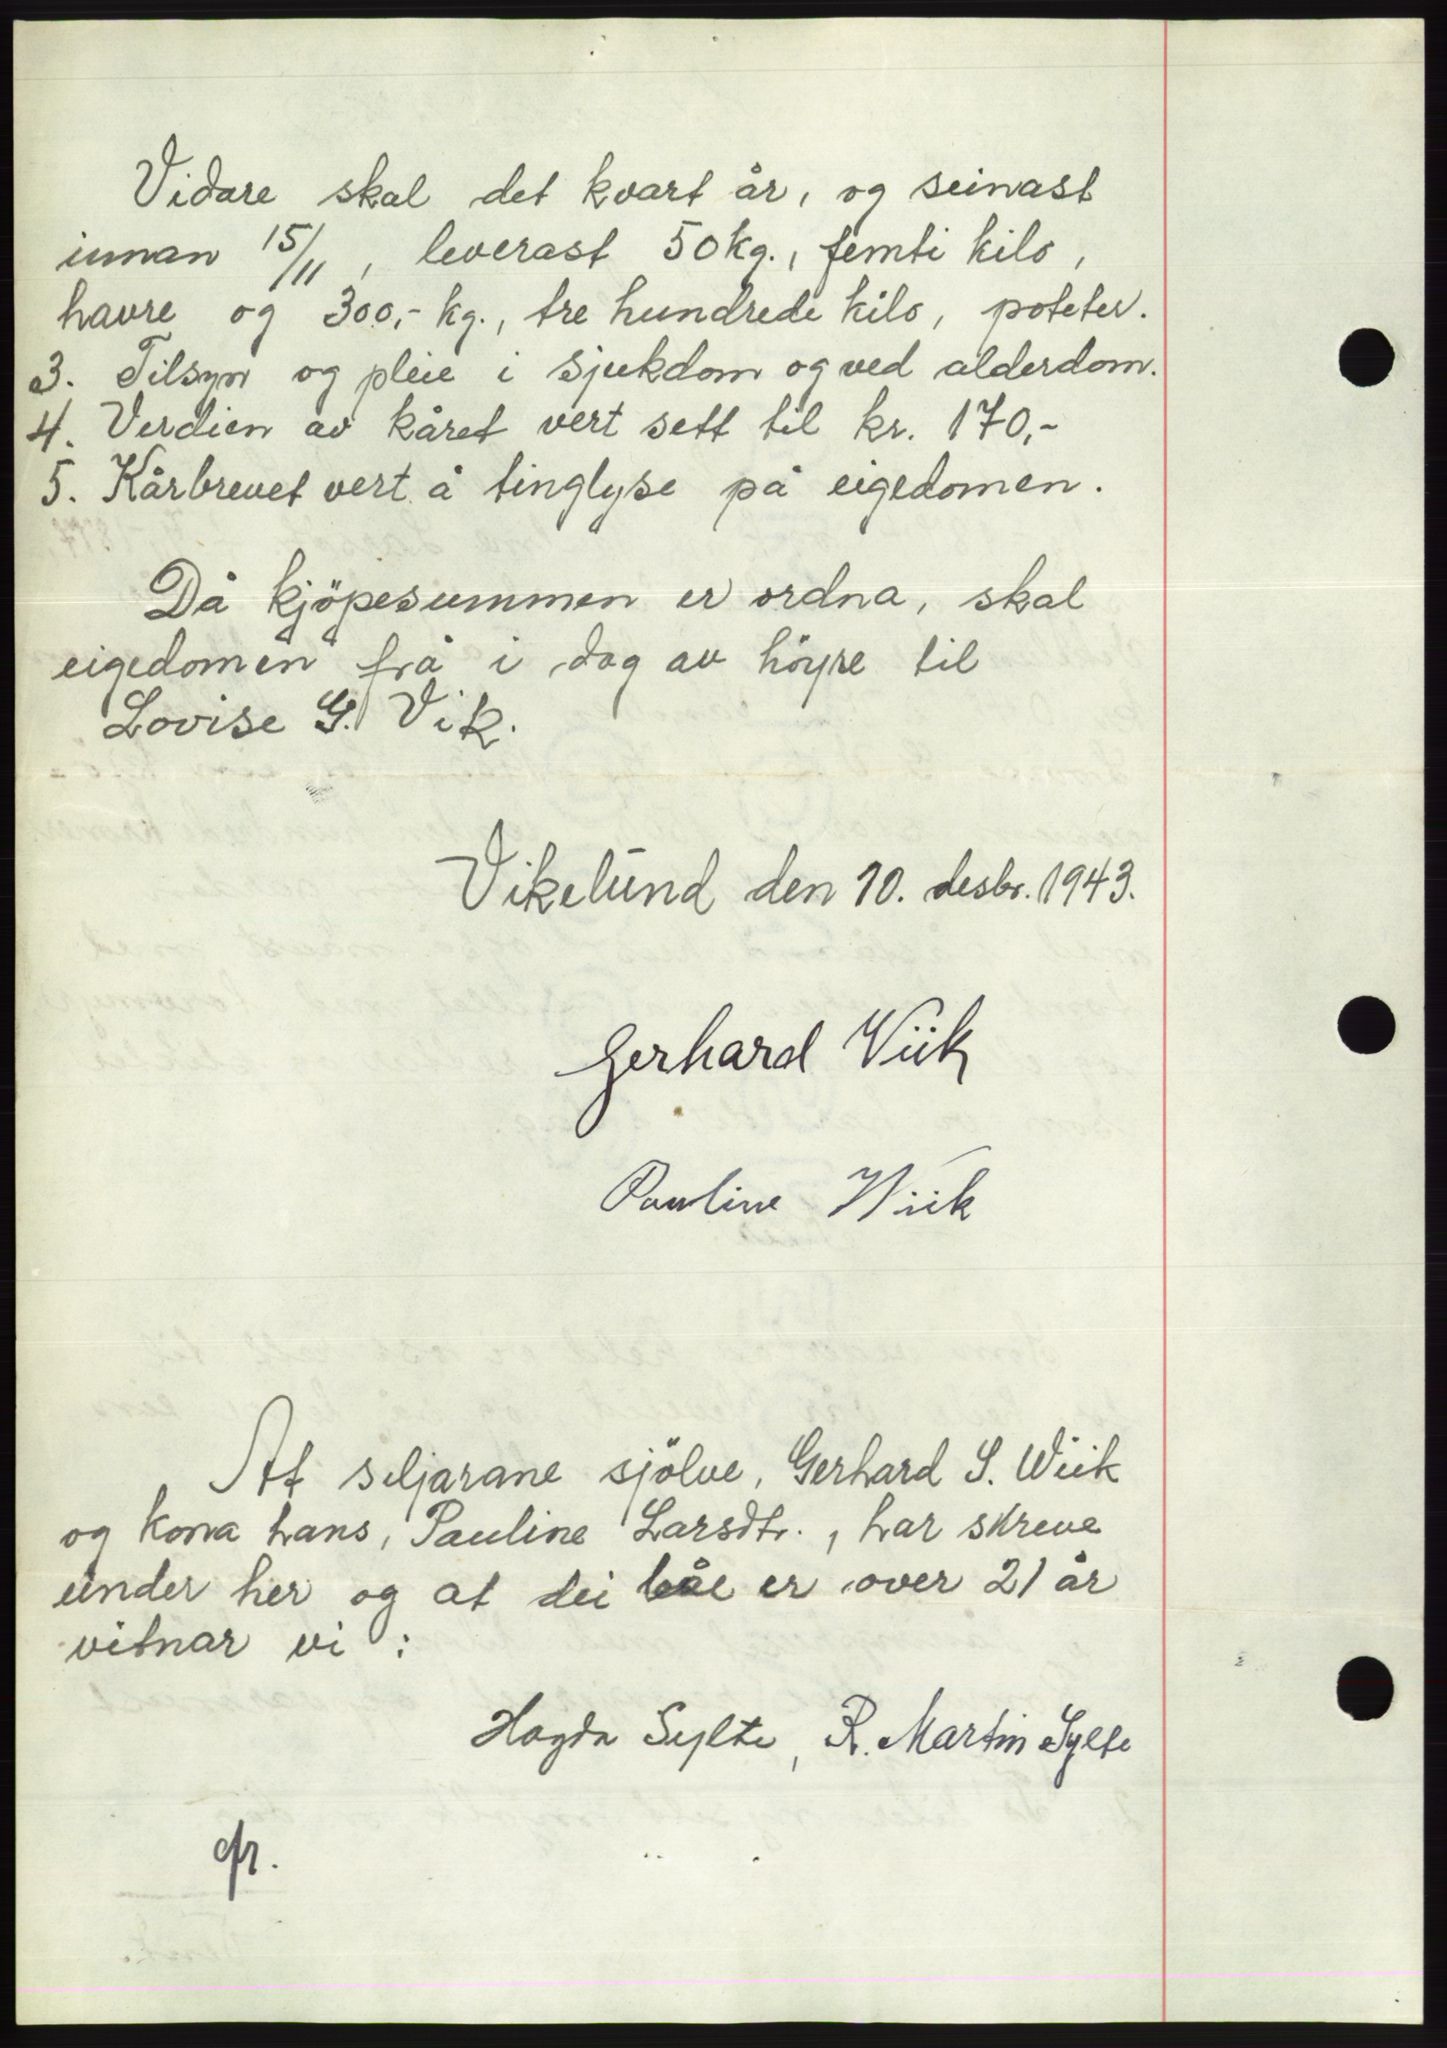 Vidare skal det kvart år, og seinast
innan 15/11, leverast 50 kg., femti kilo,
havre og 300,- kg., tre hundrede kilo, poteter.
3. Tilsyn og pleie i sjukdom og ved alderdom.
4. Verdien av kåret vert sett til kr. 170,-
5. Kårbrevet vert å tinglyse på eigedomen.
Då kjöpesummen er ordna, skal
eigedomen frå i dag av höyre til
Lovise G. Vik.
Vikelund den 10. desbr. 1943.
Gerhard Wiik
Pauline Wiik
At seljarane sjölve, Gerhard S. Wiik
og kona hans, Pauline Larsdtr., har skreve
under her og at dei båe er over 21 år
vitnar vi:
Magda Sylte, R. Martin Sylte